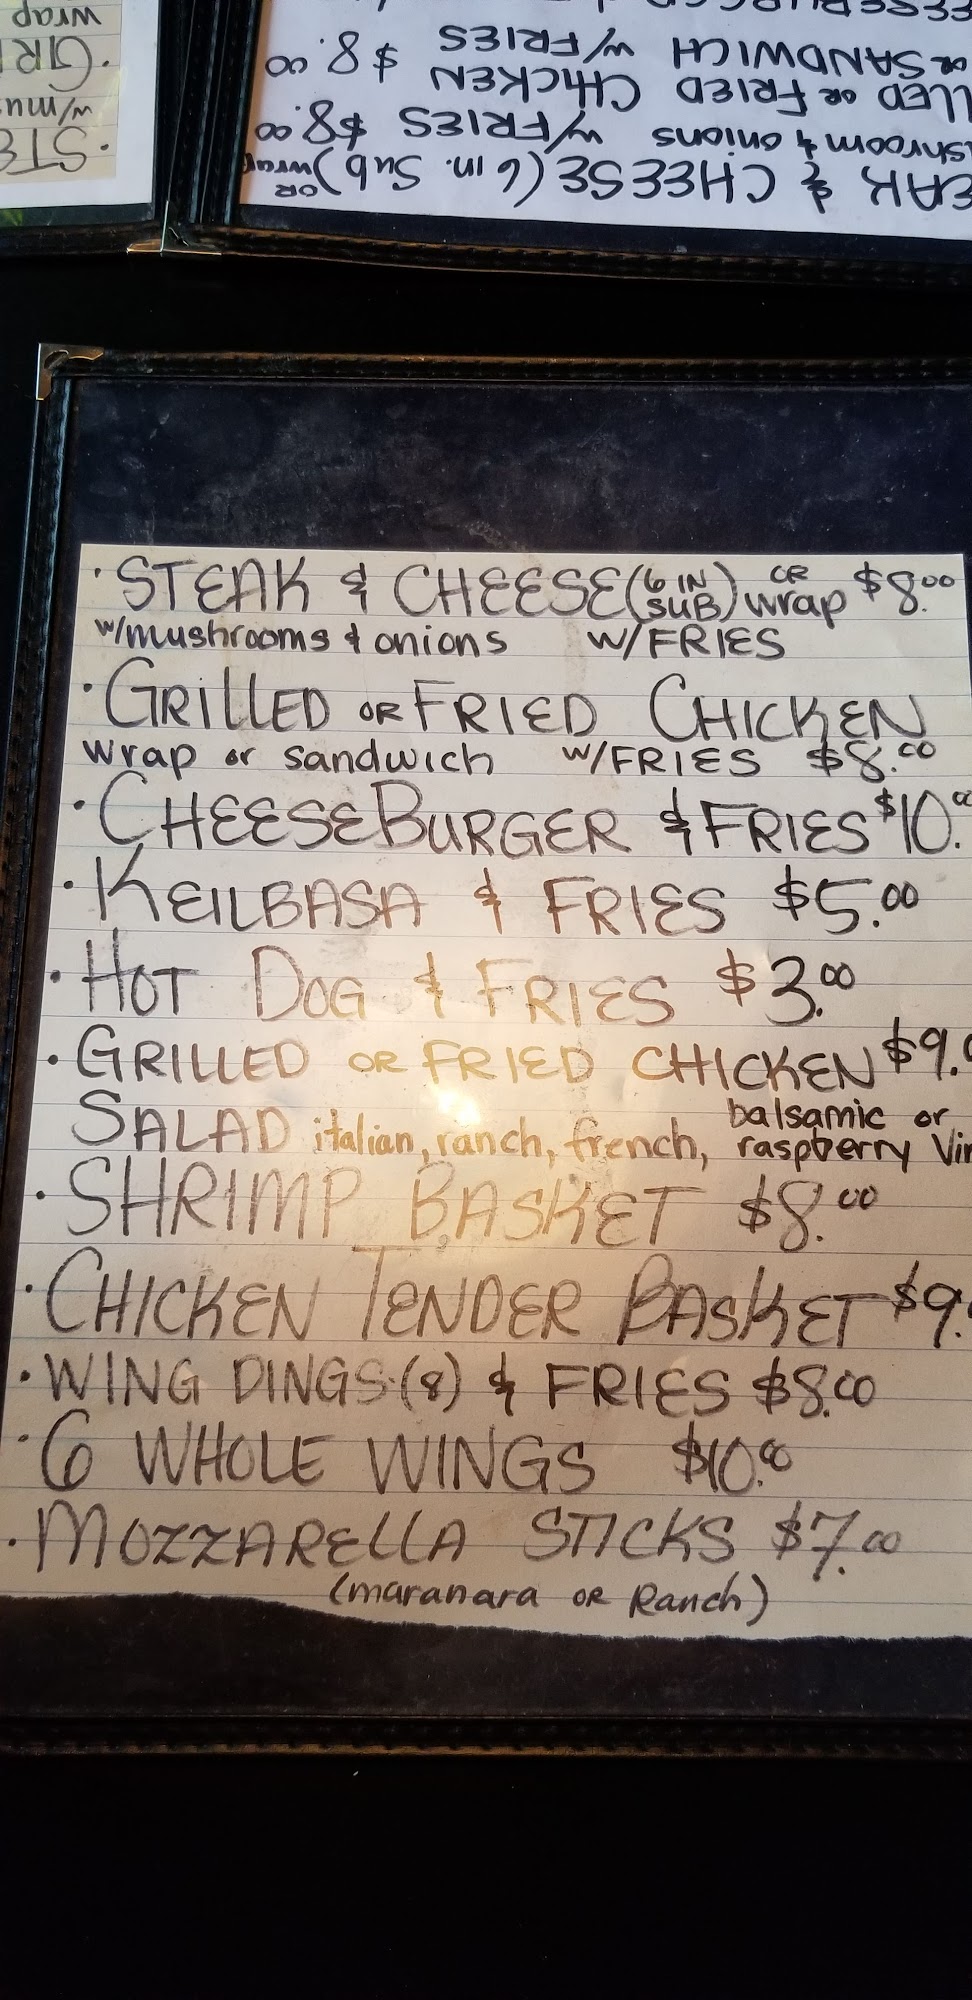 wrap
·GRI
w/mu
·STE
w/FRIES $8.00
or SANDWICH
LLED or FRIED CHICKEN
shroom & onions w/FRIES $8.00
EAK & CHEESE (6 in. Sub) OR wrap
· STEAK & CHEESE (6 IN SUB) OR wrap $8.00
w/mushrooms & onions w/FRIES
· GRILLED OR FRIED CHICKEN
wrap or sandwich w/FRIES $8.00
· CHEESEBURGER & FRIES $10.00
· KEILBASA & FRIES $5.00
· HOT DOG & FRIES $3.00
· GRILLED OR FRIED CHICKEN $9.
SALAD italian, ranch, french, balsamic or raspberry Vin
· SHRIMP BASKET $8.00
· CHICKEN TENDER BASKET $9.
· WING DINGS (8) & FRIES $8.00
· 6 WHOLE WINGS $10.00
· MOZZARELLA STICKS $7.00
(maranara OR Ranch)